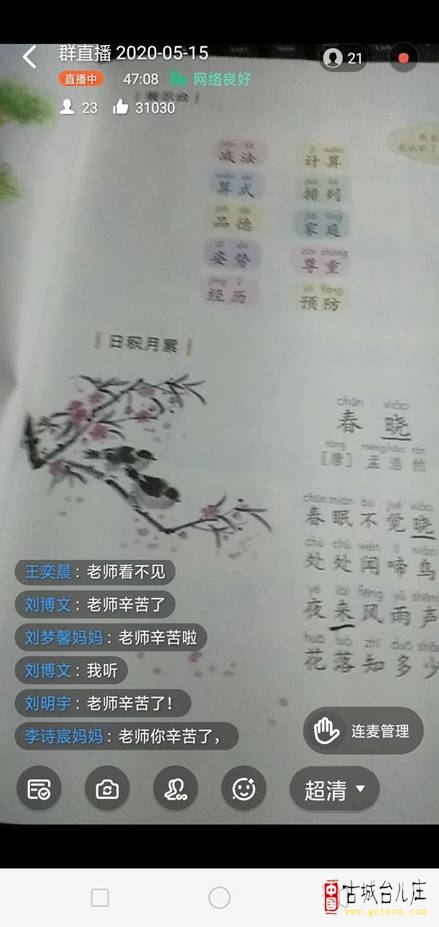 群直播 2020-05-15
21
直播中 47:08 网络良好
23 31030
减法 计算
算式 排列
品德 家庭
姿势 尊重
zūn zhòng
经历 预防
yù fáng
日积月累
chūn xiǎo
春晓
[唐] 孟浩然
chūn mián bù jué xiǎo
春眠不觉晓
处处闻啼鸟
夜来风雨声
huā luò zhī duō shǎo
花落知多少
王奕晨：老师看不见
刘博文：老师辛苦了
刘梦馨妈妈：老师辛苦啦
刘博文：我听
刘明宇：老师辛苦了！
李诗宸妈妈：老师你辛苦了，
连麦管理
超清
中国 古城台儿庄
www.gctezw.com